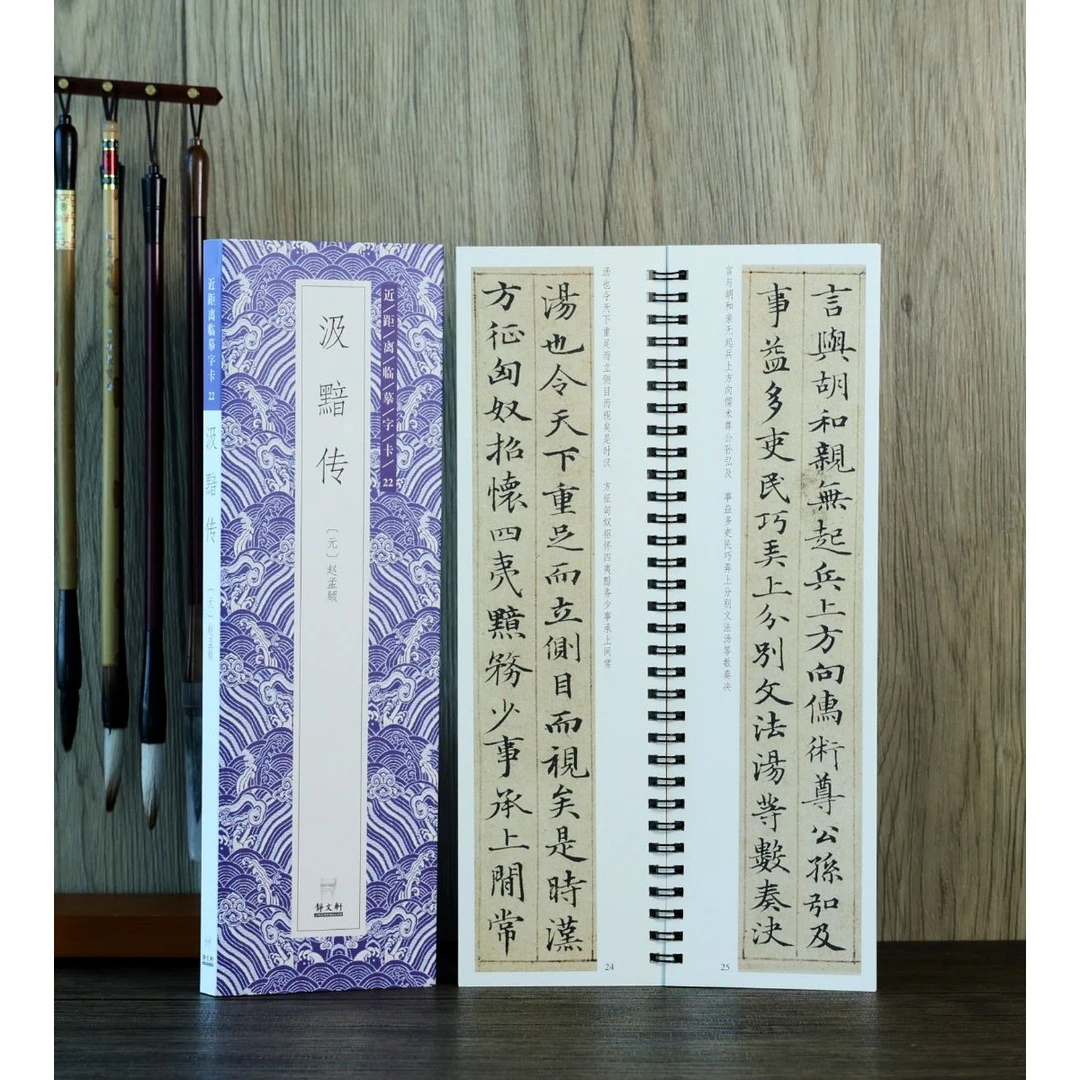 近距离临摹字卡 22
汲黯传
〔元〕赵孟頫
近/距/离/临/摹/字/卡/22
汲黯传
〔元〕赵孟頫
靜文軒
湯也令天下重足而立側目而視矣是時漢
方征匈奴招懷四夷黯務少事承上間常
汤也令天下重足而立侧目而视矣是时汉 方征匈奴招怀四夷黯务少事承上间常
24
言與胡和親無起兵上方向儒術尊公孫弘及
事益多吏民巧弄上分別文法湯等數奏決
言与胡和亲无起兵上方向儒术尊公孙弘及 事益多吏民巧弄上分别文法汤等数奏决
25